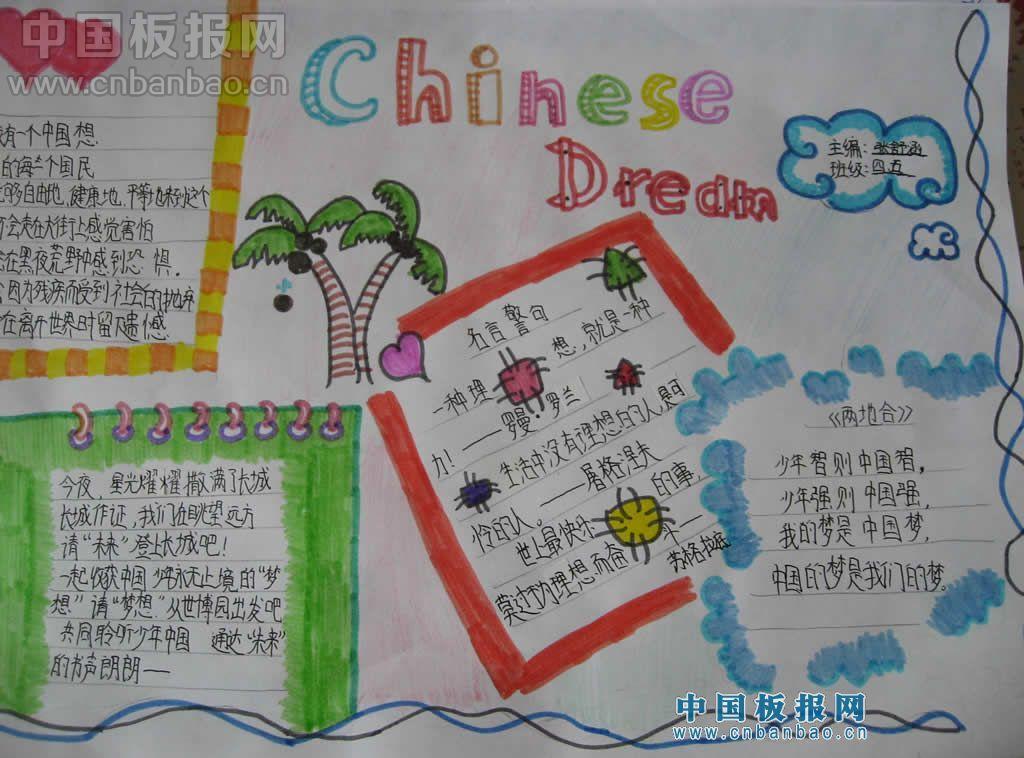 中国板报网
www.cnbanbao.cn
Chinese
Dream
主编:张舒涵
班级:四五
有一个中国想.
的每一个国民
够自由地,健康地,平等地
会走在大街上感觉害怕
在黑夜荒野中感到恐惧.
因为残疾而受到社会的抛弃
在离开世界时留下遗憾.
今夜,星光耀耀撒满了长城
长城作证,我们在眺望远方
请“未来”登上长城吧!
一起收获中国少年永无止境的“梦
想”请“梦想”从世博园出发吧
共同聆听少年中国 通达“未来”
的方声朗朗——
名言警句
一种理想,就是一种
力!——罗曼·罗兰
生活中没有理想的人,是可
怜的人。——屠格涅夫
世上最快乐的事,
莫过为理想而奋斗——
苏格拉底
《两地合》
少年智则中国智,
少年强则中国强,
我的梦是中国梦,
中国的梦是我们的梦.
中国板报网
www.cnbanbao.cn